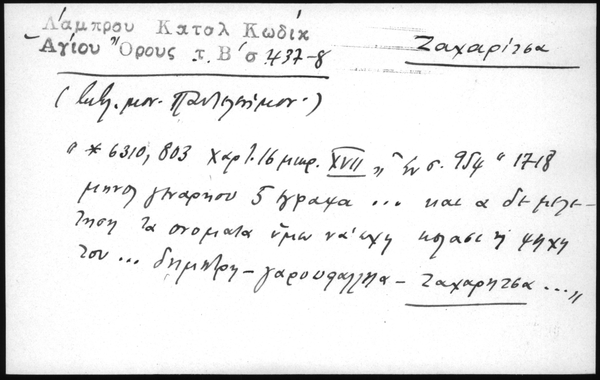 Λάμπρου Κατολ Κωδίκ
Ἁγίου Ὄρους τ. Β΄ σ 437-8
Ζαχαρίτσα
(βιβλ. μον. Παντελεήμον.)
" * 6310, 803 χαρτ. 16 μικρ. XVII „ " Ἐν σ. 954 " 1718
μηνος γεναρηου 5 εγραψα ... και α δε μελε-
τηση τα ονοματα ὑμω να εχη κολασι η ψηχη
του ... δημητρη - γαρουφαλληα - Ζαχαρητσα ... „